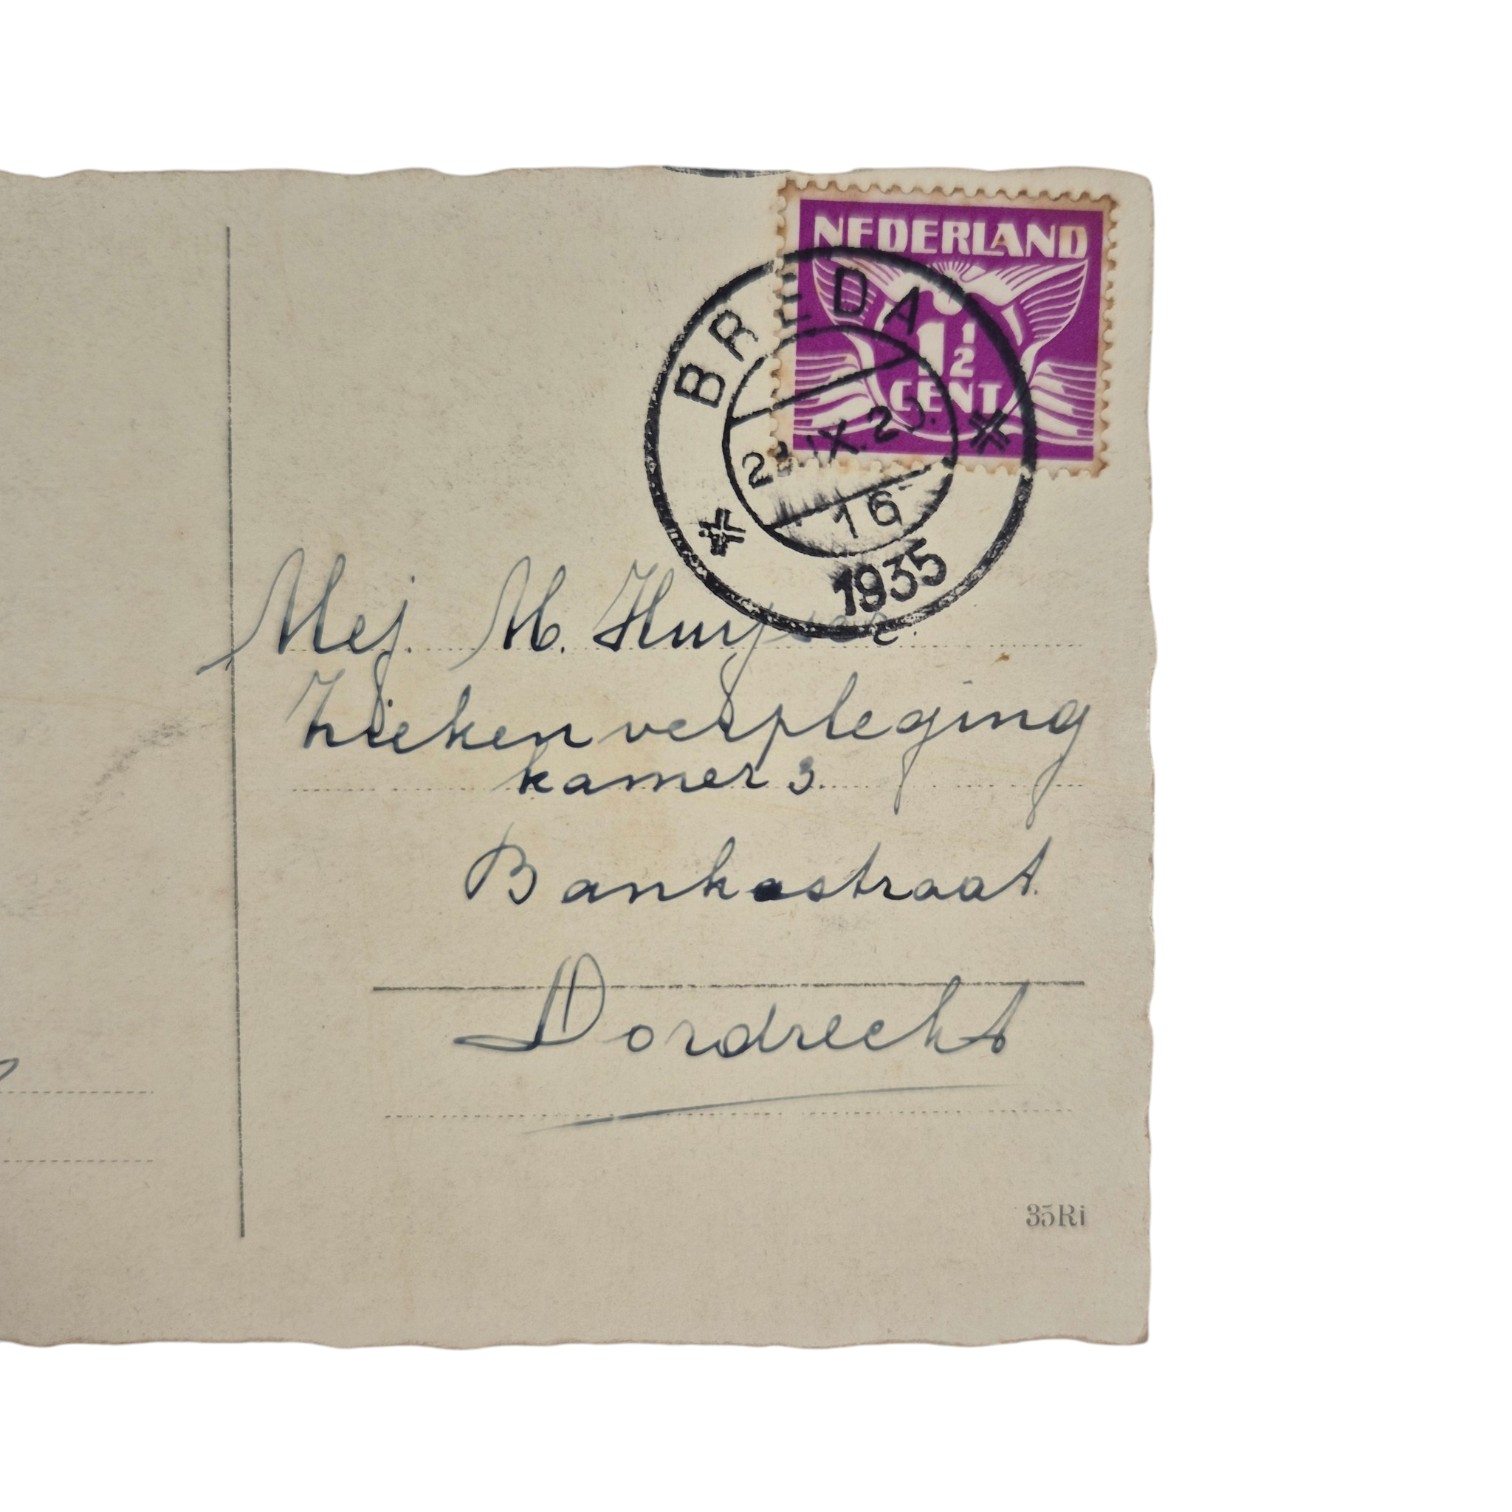 NEDERLAND
1½
CENT
BREDA
IX.20.
16
1935
Mej. M. Huysse.
Ziekenverpleging
kamer 3.
Bankastraat.
Dordrecht
35Ri